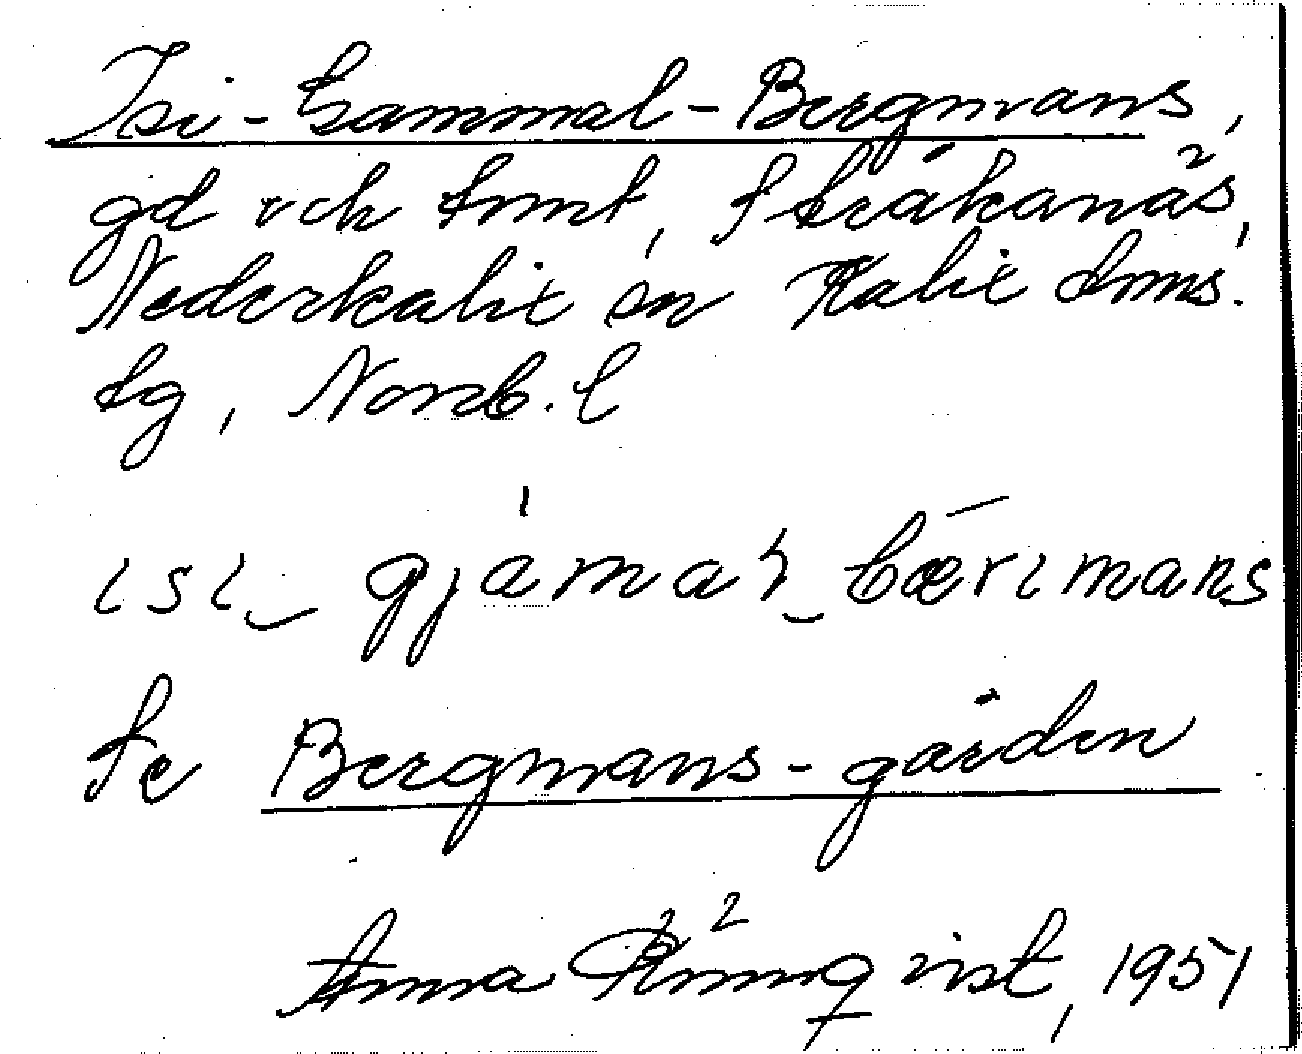 Isi-Gammal-Bergmans,
gd och tomt, Stråkanäs,
Nederkalix sn Kalix dms.
tg, Norrb. l
ısı_ gjámaɫ_bærımans
Se Bergmans-gården
Anna Rönnqvist, 1951